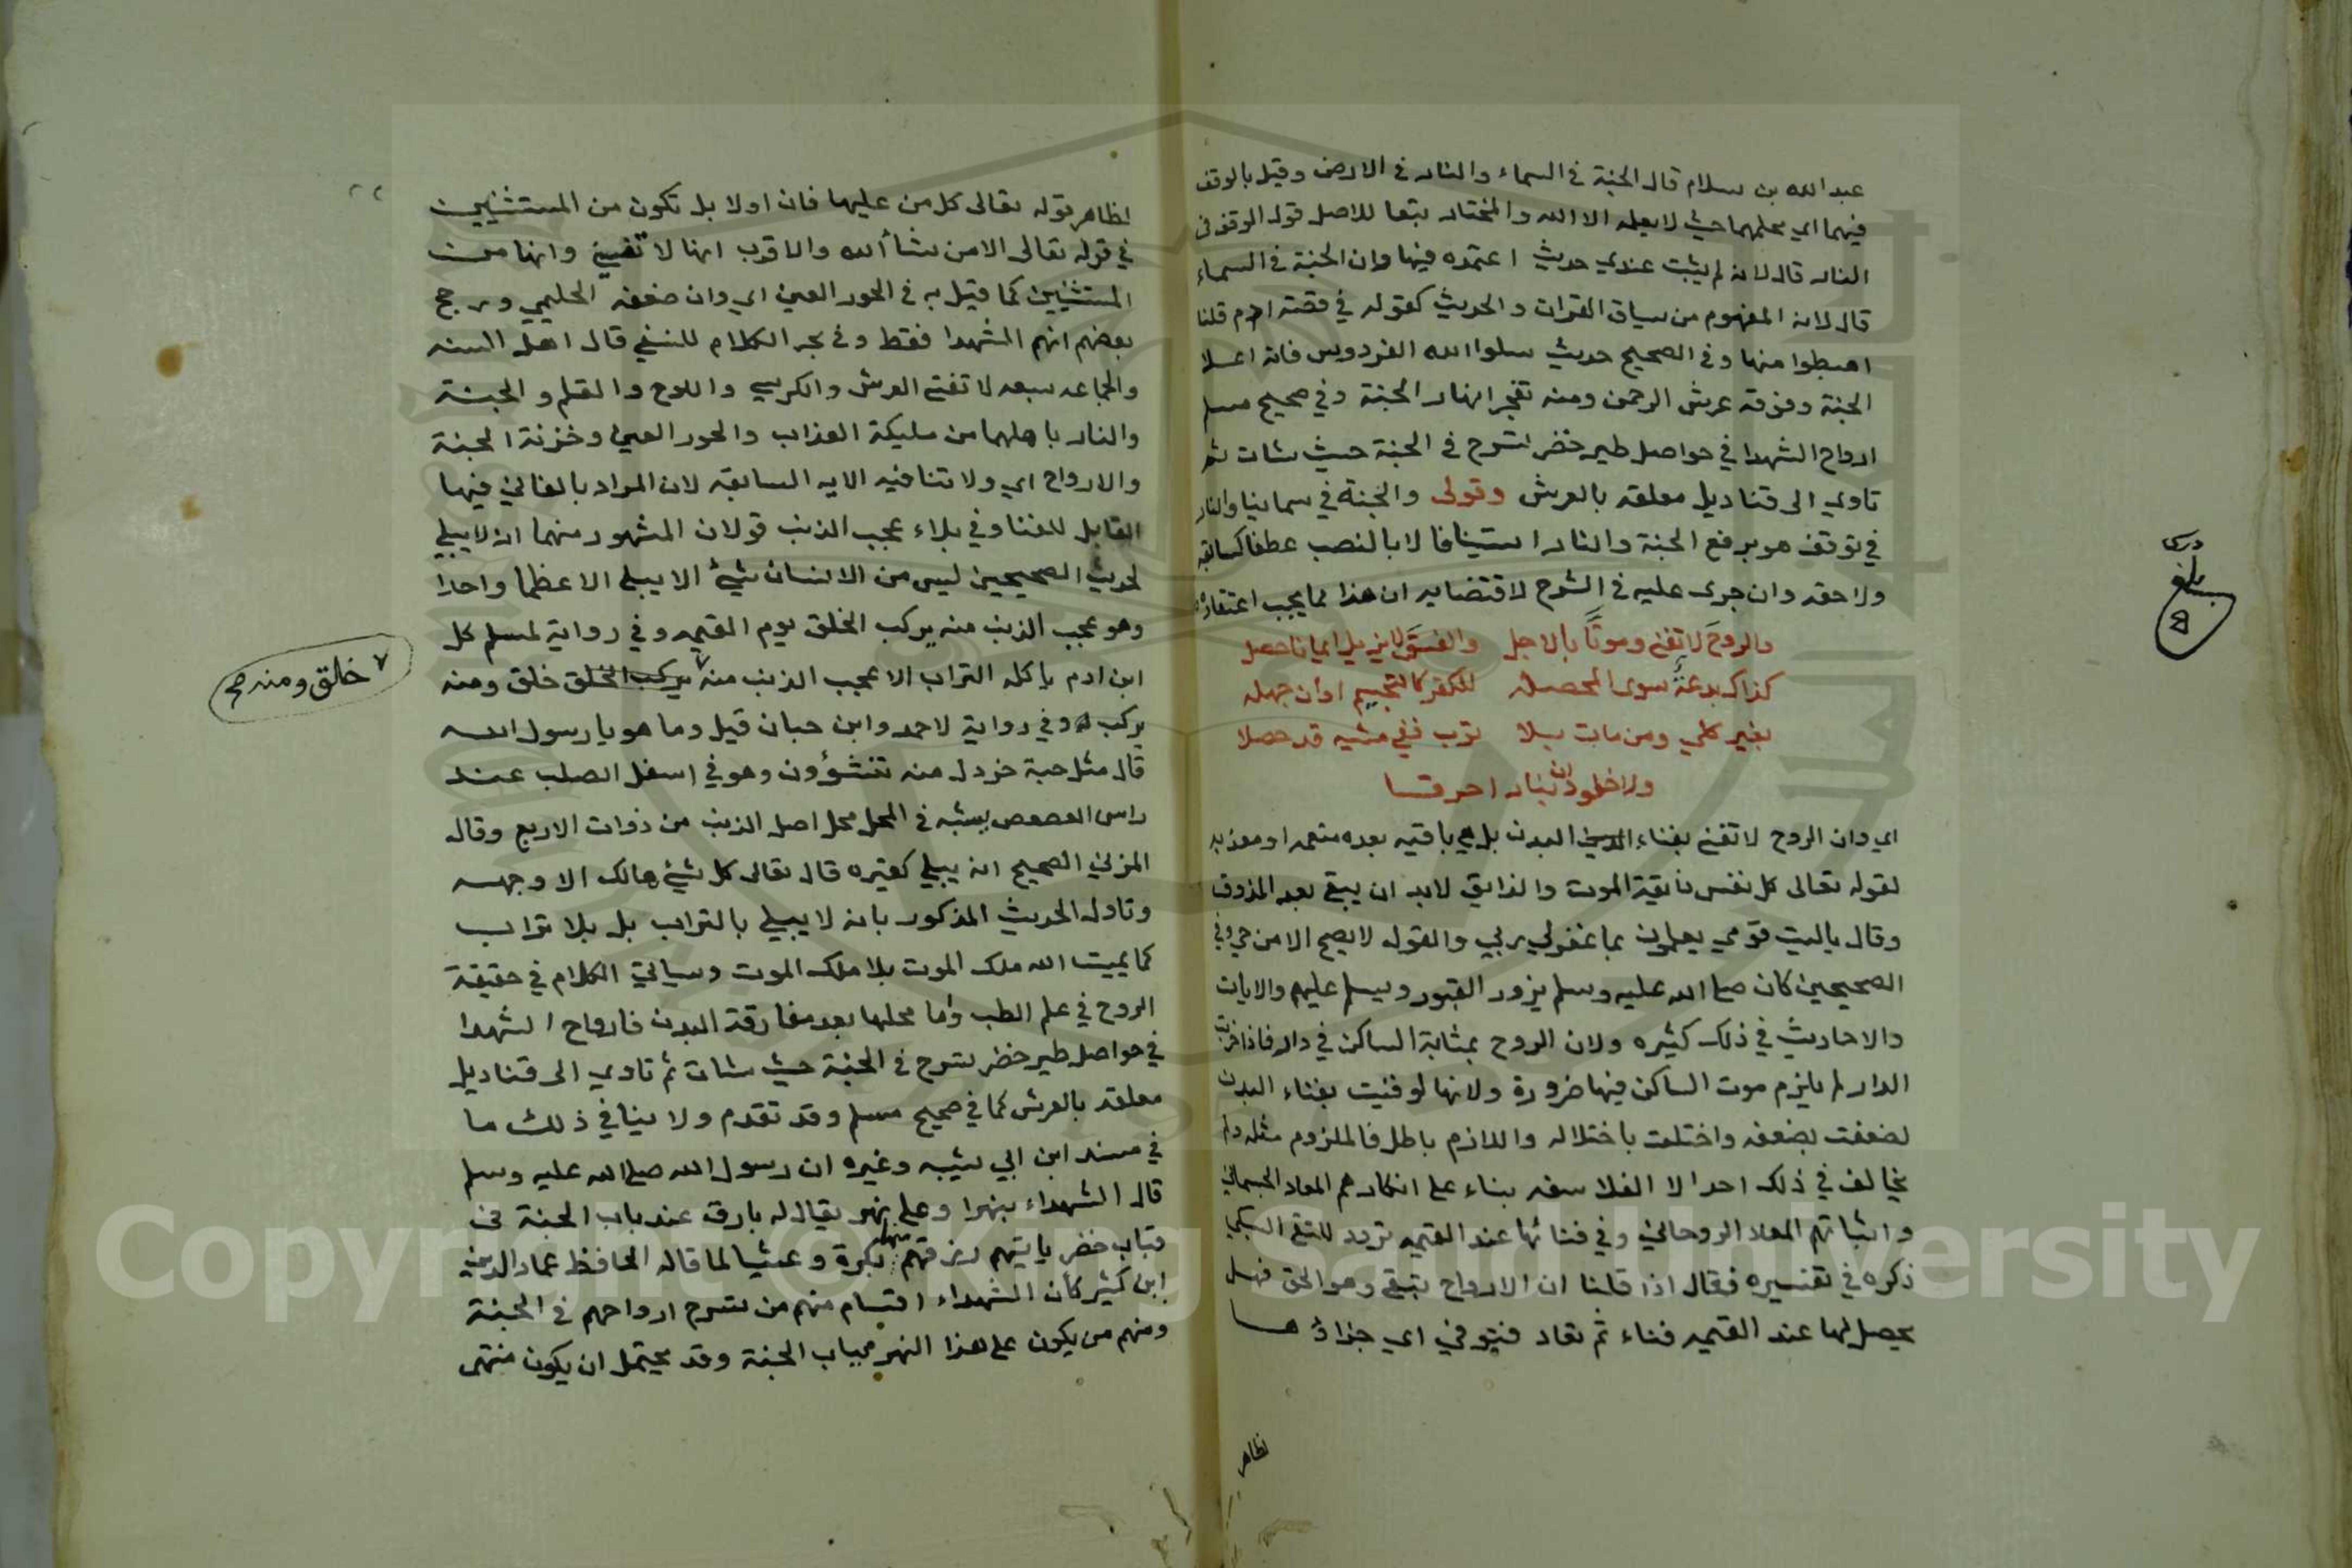 عبد الله بن سلام قال الجنة في السماء والنار في الارض وقيل بالوقف
فيهما اي محلهما حيث لا يعلمه الا الله والمختار تبعا للاصل قوله الوقف في
النار قال لانه لم يثبت عندي حديث اعتمده فيها وان الجنة في السماء
قال لانه المفهوم من سياق القران والحديث كقوله في قصة ادم قلنا
اهبطوا منها وفي الصحيح حديث سلوا الله الفردوس فانه اعلا
الجنة وفوقه عرش الرحمن ومنه تفجر انهار الجنة وفي صحيح مسلم
ارواح الشهدا في حواصل طير خضر تسرح في الجنة حيث شات ثم
تاوي الى قناديل معلقه بالعرش وقولى والجنة في سمائنا والنار
في توقف هو برفع الجنة والنار استينافا لا بالنصب عطفا كسابقه
ولاحقه وان جرى عليه في الشرح لاقتضايه ان هذا مما يجب اعتقاده
والروح لا تفنى وموتا بالاجل والفسق لا يزيل ايمانا حصل
كذاك بدعة سوى المحصله للكفر كالتجسيم او ان جهله
بغير كلي ومن مات بلا توب ففي مشيه قد حصلا
ولا خلود ان بنار احرقا
اي وان الروح لا تفنى بفناء البدن بل هي باقيه بعده منعمه او معذبه
لقوله تعالى كل نفس ذايقة الموت والذايق لابد ان يبقى بعد المذوق
وقال ياليت قومي يعلمون بما غفر لي ربي والقول لا يصح الا من حي وفي
الصحيحين كان صلى الله عليه وسلم يزور القبور ويسلم عليهم والايات
والاحاديث في ذلك كثيره ولان الروح بمثابة الساكن في دار فاذا خربت
الدار لم يلزم موت الساكن فيها ضرورة ولانها لو فنيت بفناء البدن
لضعفت بضعفه واختلت باختلاله واللازم باطل فالملزوم مثله ولم
يخالف في ذلك احد الا الفلاسفه بناء على انكارهم المعاد الجسماني
واثباتهم المعاد الروحاني وفي فنائها عند القيمه تردد للتقي السبكي
ذكره في تفسيره فقال اذا قلنا ان الارواح تبقى وهو الحق فهل
يحصل لها عند القيمه فناء ثم تعاد فتوفي اي جزاؤها
لظاهر
درس
بلغ
لظاهر قوله تعالى كل من عليها فان اولا بل تكون من المستثنيين
في قوله تعالى الا من شاء الله والاقرب انها لا تفنى وانها من
المستثنيين كما قيل به في الحور العين اي وان ضعفه الحليمي ورجح
بعضهم انهم الشهدا فقط وفي بحر الكلام للنسفي قال اهل السنه
والجماعه سبعه لا تفنى العرش والكرسي واللوح والقلم والجنة
والنار باهلهما من مليكة العذاب والحور العين وخزنة الجنة
والارواح اي ولا تنافيه الايه السابقه لان المراد بالفاني فيها
القابل للفنا وفي بلاء عجب الذنب قولان المشهور منهما انه لا يبلى
لحديث الصحيحين ليس من الانسان شيئ الا يبلى الا عظما واحدا
وهو عجب الذنب منه يركب الخلق يوم القيمه وفي رواية لمسلم كل
ابن ادم ياكله التراب الا عجب الذنب منه يركب الخلق خلق ومنه
يركب وفي رواية لاحمد وابن حبان قيل وما هو يا رسول الله
قال مثل حبة خردل منه تنشؤون وهو في اسفل الصلب عند
راس العصعص يشبه في المحل محل اصل الذنب من ذوات الاربع وقال
المزني الصحيح انه يبلى كغيره قال تعالى كل شيئ هالك الا وجهه
وتاول الحديث المذكور بانه لا يبلى بالتراب بل بلا تراب
كما يميت الله ملك الموت بلا ملك الموت وسياتي الكلام في حقيقة
الروح في علم الطب واما محلها بعد مفارقة البدن فارواح الشهدا
في حواصل طير خضر تسرح في الجنة حيث شات ثم تاوي الى قناديل
معلقه بالعرش كما في صحيح مسلم وقد تقدم ولا ينافي ذلك ما
في مسند ابن ابي شيبه وغيره ان رسول الله صلى الله عليه وسلم
قال الشهداء بنهر او على نهر يقال له بارق عند باب الجنة في
قباب خضر ياتيهم رزقهم منها بكرة وعشيا لما قاله الحافظ عماد الدين
ابن كثير كأن الشهداء اقسام منهم من تسرح ارواحهم في الجنة
ومنهم من يكون على هذا النهر بباب الجنة وقد يحتمل ان يكون منتهى
خلق ومنه صح
Copyright © King Saud University